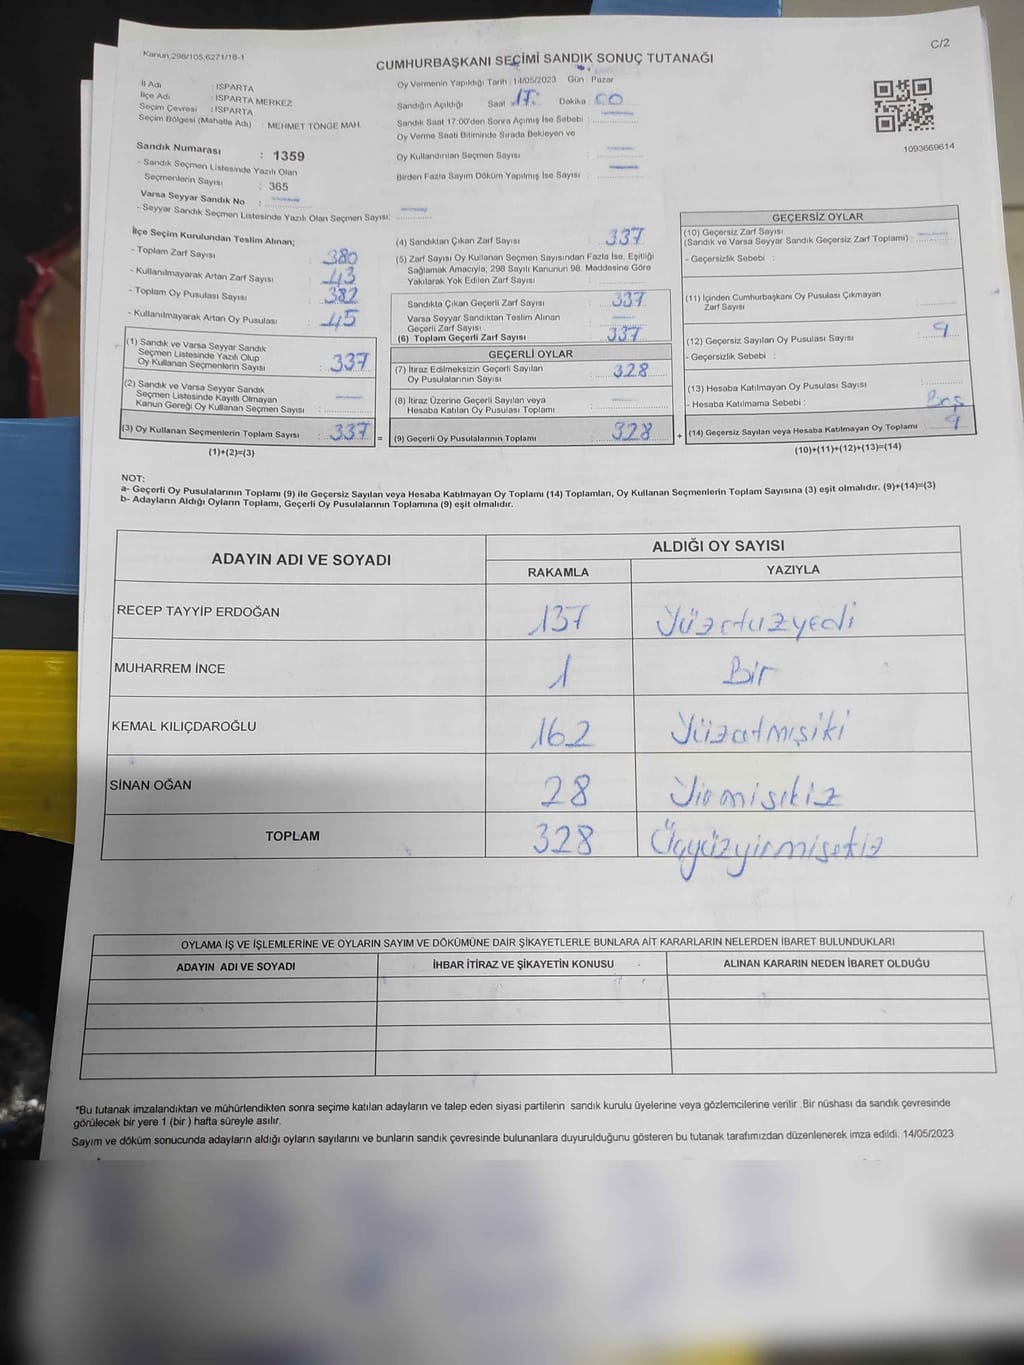 Kanun,298/105,6271/18-1
C/2
CUMHURBAŞKANI SEÇİMİ SANDIK SONUÇ TUTANAĞI
İl Adı : ISPARTA
İlçe Adı : ISPARTA MERKEZ
Seçim Çevresi : ISPARTA
Seçim Bölgesi (Mahalle Adı) : MEHMET TÖNGE MAH.
Oy Vermenin Yapıldığı Tarih : 14/05/2023 Gün : Pazar
Sandığın Açıldığı Saat : 17: Dakika : 00
Sandık Saat 17:00'den Sonra Açımış İse Sebebi :
Oy Verme Saati Bitiminde Sırada Bekleyen ve
Oy Kullandırılan Seçmen Sayısı :
Birden Fazla Sayım Döküm Yapılmış İse Sayısı :
1093669614
Sandık Numarası : 1359
- Sandık Seçmen Listesinde Yazılı Olan
Seçmenlerin Sayısı : 365
Varsa Seyyar Sandık No :
- Seyyar Sandık Seçmen Listesinde Yazılı Olan Seçmen Sayısı:
İlçe Seçim Kurulundan Teslim Alınan;
- Toplam Zarf Sayısı : 380
- Kullanılmayarak Artan Zarf Sayısı : 43
- Toplam Oy Pusulası Sayısı : 382
- Kullanılmayarak Artan Oy Pusulası : 45
(1) Sandık ve Varsa Seyyar Sandık
Seçmen Listesinde Yazılı Olup
Oy Kullanan Seçmenlerin Sayısı : 337
(2) Sandık ve Varsa Seyyar Sandık
Seçmen Listesinde Kayıtlı Olmayan
Kanun Gereği Oy Kullanan Seçmen Sayısı :
(3) Oy Kullanan Seçmenlerin Toplam Sayısı : 337 =
(1)+(2)=(3)
(4) Sandıktan Çıkan Zarf Sayısı : 337
(5) Zarf Sayısı Oy Kullanan Seçmen Sayısından Fazla İse, Eşitliği
Sağlamak Amacıyla, 298 Sayılı Kanunun 98. Maddesine Göre
Yakılarak Yok Edilen Zarf Sayısı :
Sandıkta Çıkan Geçerli Zarf Sayısı : 337
Varsa Seyyar Sandıktan Teslim Alınan
Geçerli Zarf Sayısı :
(6) Toplam Geçerli Zarf Sayısı : 337
GEÇERLİ OYLAR
(7) İtiraz Edilmeksizin Geçerli Sayılan
Oy Pusulalarının Sayısı : 328
(8) İtiraz Üzerine Geçerli Sayılan veya
Hesaba Katılan Oy Pusulası Toplamı :
(9) Geçerli Oy Pusulalarının Toplamı : 328 +
GEÇERSİZ OYLAR
(10) Geçersiz Zarf Sayısı
(Sandık ve Varsa Seyyar Sandık Geçersiz Zarf Toplamı) :
- Geçersizlik Sebebi :
(11) İçinden Cumhurbaşkanı Oy Pusulası Çıkmayan
Zarf Sayısı :
(12) Geçersiz Sayılan Oy Pusulası Sayısı : 9
- Geçersizlik Sebebi :
(13) Hesaba Katılmayan Oy Pusulası Sayısı :
- Hesaba Katılmama Sebebi : Boş
(14) Geçersiz Sayılan veya Hesaba Katılmayan Oy Toplamı : 9
(10)+(11)+(12)+(13)=(14)
NOT:
a- Geçerli Oy Pusulalarının Toplamı (9) ile Geçersiz Sayılan veya Hesaba Katılmayan Oy Toplamı (14) Toplamları, Oy Kullanan Seçmenlerin Toplam Sayısına (3) eşit olmalıdır. (9)+(14)=(3)
b- Adayların Aldığı Oyların Toplamı, Geçerli Oy Pusulalarının Toplamına (9) eşit olmalıdır.
ADAYIN ADI VE SOYADI
ALDIĞI OY SAYISI
RAKAMLA YAZIYLA
RECEP TAYYİP ERDOĞAN 137 Yüzotuzyedi
MUHARREM İNCE 1 Bir
KEMAL KILIÇDAROĞLU 162 Yüzatmışiki
SİNAN OĞAN 28
TOPLAM 328 Üçyüzyirmisekiz
OYLAMA İŞ VE İŞLEMLERİNE VE OYLARIN SAYIM VE DÖKÜMÜNE DAİR ŞİKAYETLERLE BUNLARA AİT KARARLARIN NELERDEN İBARET BULUNDUKLARI
ADAYIN ADI VE SOYADI İHBAR İTİRAZ VE ŞİKAYETİN KONUSU ALINAN KARARIN NEDEN İBARET OLDUĞU
*Bu tutanak imzalandıktan ve mühürlendikten sonra seçime katılan adayların ve talep eden siyasi partilerin sandık kurulu üyelerine veya gözlemcilerine verilir .Bir nüshası da sandık çevresinde
görülecek bir yere 1 (bir ) hafta süreyle asılır.
Sayım ve döküm sonucunda adayların aldığı oyların sayılarını ve bunların sandık çevresinde bulunanlara duyurulduğunu gösteren bu tutanak tarafımızdan düzenlenerek imza edildi. 14/05/2023